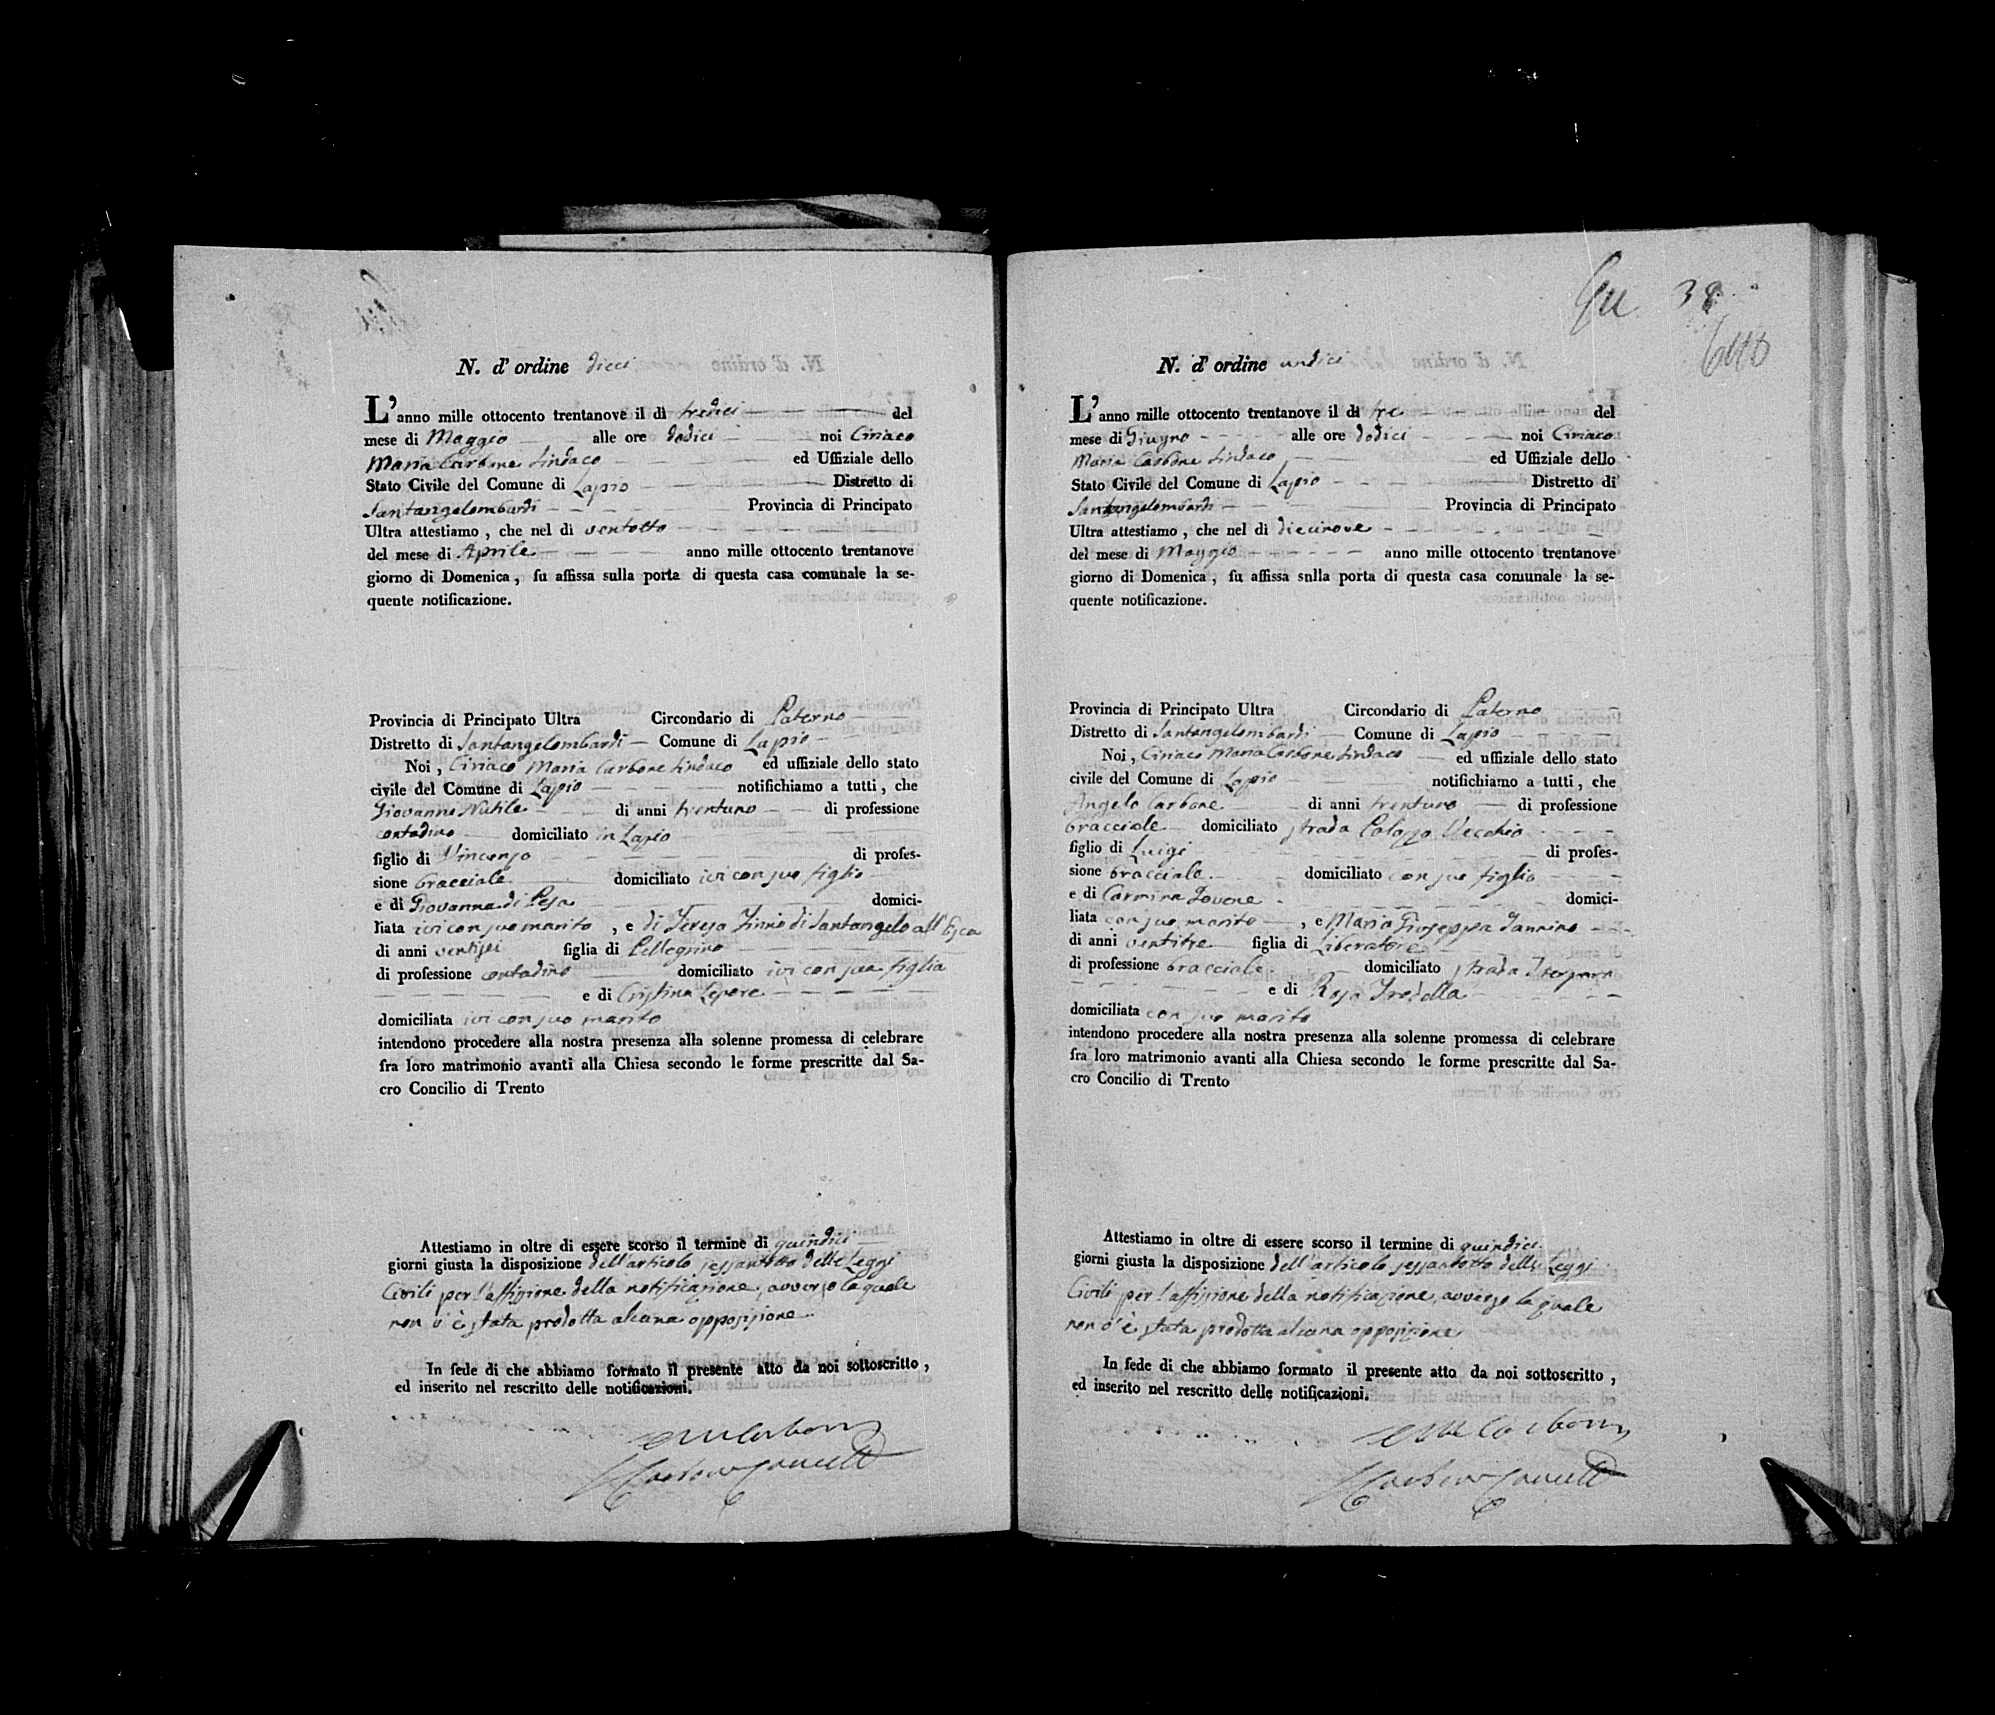 N. d' ordine dieci
L'anno mille ottocento trentanove il dì tredici del
mese di Maggio alle ore dodici noi Ciriaco
Maria Carbone Sindaco ed Uffiziale dello
Stato Civile del Comune di Lapio Distretto di
Santangelombardi Provincia di Principato
Ultra attestiamo, che nel dì ventotto
del mese di Aprile anno mille ottocento trentanove
giorno di Domenica, fu affissa sulla porta di questa casa comunale la se-
quente notificazione.
Provincia di Principato Ultra Circondario di Paterno
Distretto di Santangelombardi Comune di Lapio
Noi, Ciriaco Maria Carbone Sindaco ed uffiziale dello stato
civile del Comune di Lapio notifichiamo a tutti, che
Giovanni Nutile di anni trentuno di professione
contadino domiciliato in Lapio
figlio di Vincenzo di profes-
sione bracciale domiciliato ivi con suo figlio
e di Giovanna di Pesa domici-
liata ivi con suo marito, e di Teresa Zinno di Santangelo all' Esca
di anni ventisei figlia di Pellegrino
di professione contadino domiciliato ivi con sua figlia
e di Cristina Lepore
domiciliata ivi con suo marito
intendono procedere alla nostra presenza alla solenne promessa di celebrare
fra loro matrimonio avanti alla Chiesa secondo le forme prescritte dal Sa-
cro Concilio di Trento
Attestiamo in oltre di essere scorso il termine di quindici
giorni giusta la disposizione dell'articolo sessantotto delle Leggi
Civili per l'affissione della notificazione, avverso la quale
non v'è stata prodotta alcuna opposizione
In fede di che abbiamo formato il presente atto da noi sottoscritto,
ed inserito nel rescritto delle notificazioni.
CMCarbone
38
N. d' ordine undici
L'anno mille ottocento trentanove il dì tre del
mese di Giugno alle ore dodici noi Ciriaco
Maria Carbone Sindaco ed Uffiziale dello
Stato Civile del Comune di Lapio Distretto di
Santangelombardi Provincia di Principato
Ultra attestiamo, che nel dì diecinove
del mese di Maggio anno mille ottocento trentanove
giorno di Domenica, fu affissa snlla porta di questa casa comunale la se-
quente notificazione.
Provincia di Principato Ultra Circondario di Paterno
Distretto di Santangelombardi Comune di Lapio
Noi, Ciriaco Maria Carbone Sindaco ed uffiziale dello stato
civile del Comune di Lapio notifichiamo a tutti, che
Angelo Carbone di anni trentuno di professione
bracciale domiciliato strada Palazzo Vecchio
figlio di Luigi di profes-
sione bracciale domiciliato con suo figlio
e di Carmina Iovene domici-
liata con suo marito, e Maria Gioseppa Iannino
di anni ventitre figlia di Liberatore
di professione bracciale domiciliato strada
e di Rosa Trodella
domiciliata con suo marito
intendono procedere alla nostra presenza alla solenne promessa di celebrare
fra loro matrimonio avanti alla Chiesa secondo le forme prescritte dal Sa-
cro Concilio di Trento
Attestiamo in oltre di essere scorso il termine di quindici
giorni giusta la disposizione dell'articolo sessantotto delle Leggi
Civili per l'affissione della notificazione, avverso la quale
non v'è stata prodotta alcuna opposizione
In fede di che abbiamo formato il presente atto da noi sottoscritto,
ed inserito nel rescritto delle notificazioni.
CMCarbone